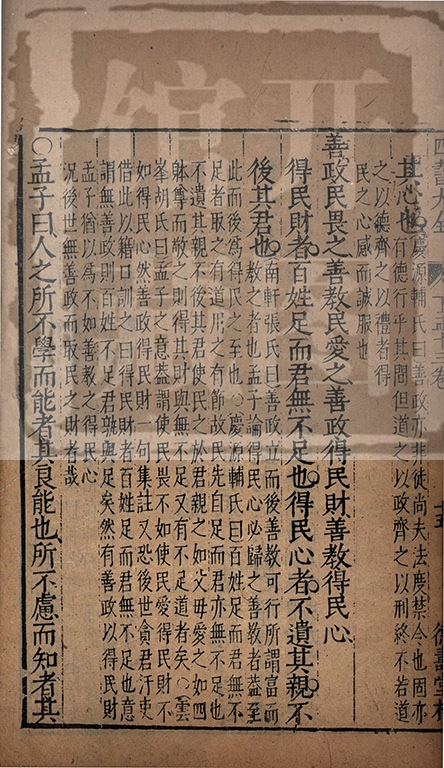 四書大全
其心也慶源輔氏曰善政亦非徒尚夫法度禁令也固亦
有德行乎其間但道之以政齊之以刑終不若道
之以德齊之以禮者得
民之心感而誠服也
善政民畏之善教民愛之善政得民財善教得民心
得民財者百姓足而君無不足也得民心者不遺其親不
後其君也南軒張氏曰善政立而後善教可行所謂富而
教之者也孟子論得民心必歸之善教者蓋至
此而後為得民之至也○慶源輔氏曰百姓足而君無不
足者取之有道用之有節故民先自足而君亦無不足也
不遺其親不後其君使民之於君親之如父母愛之如四
躰尊而敬之則得其財與無不足又有不足道者矣○雲
峯胡氏曰孟子之意葢謂使民畏不如使民愛得民財不
如得民心然善政得民財一句集註又恐後世貪君汙吏
借此以籍口訓之曰得民財者百姓足而君無不足也意
謂無善政則百姓不足君孰與足矣然有善政以得民財
孟子猶以為不如善教之得民心
況後世無善政而取民之財者哉
○孟子曰人之所不學而能者其良能也所不慮而知者其